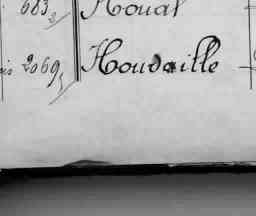 683, Moual
is 2069, Houdaille